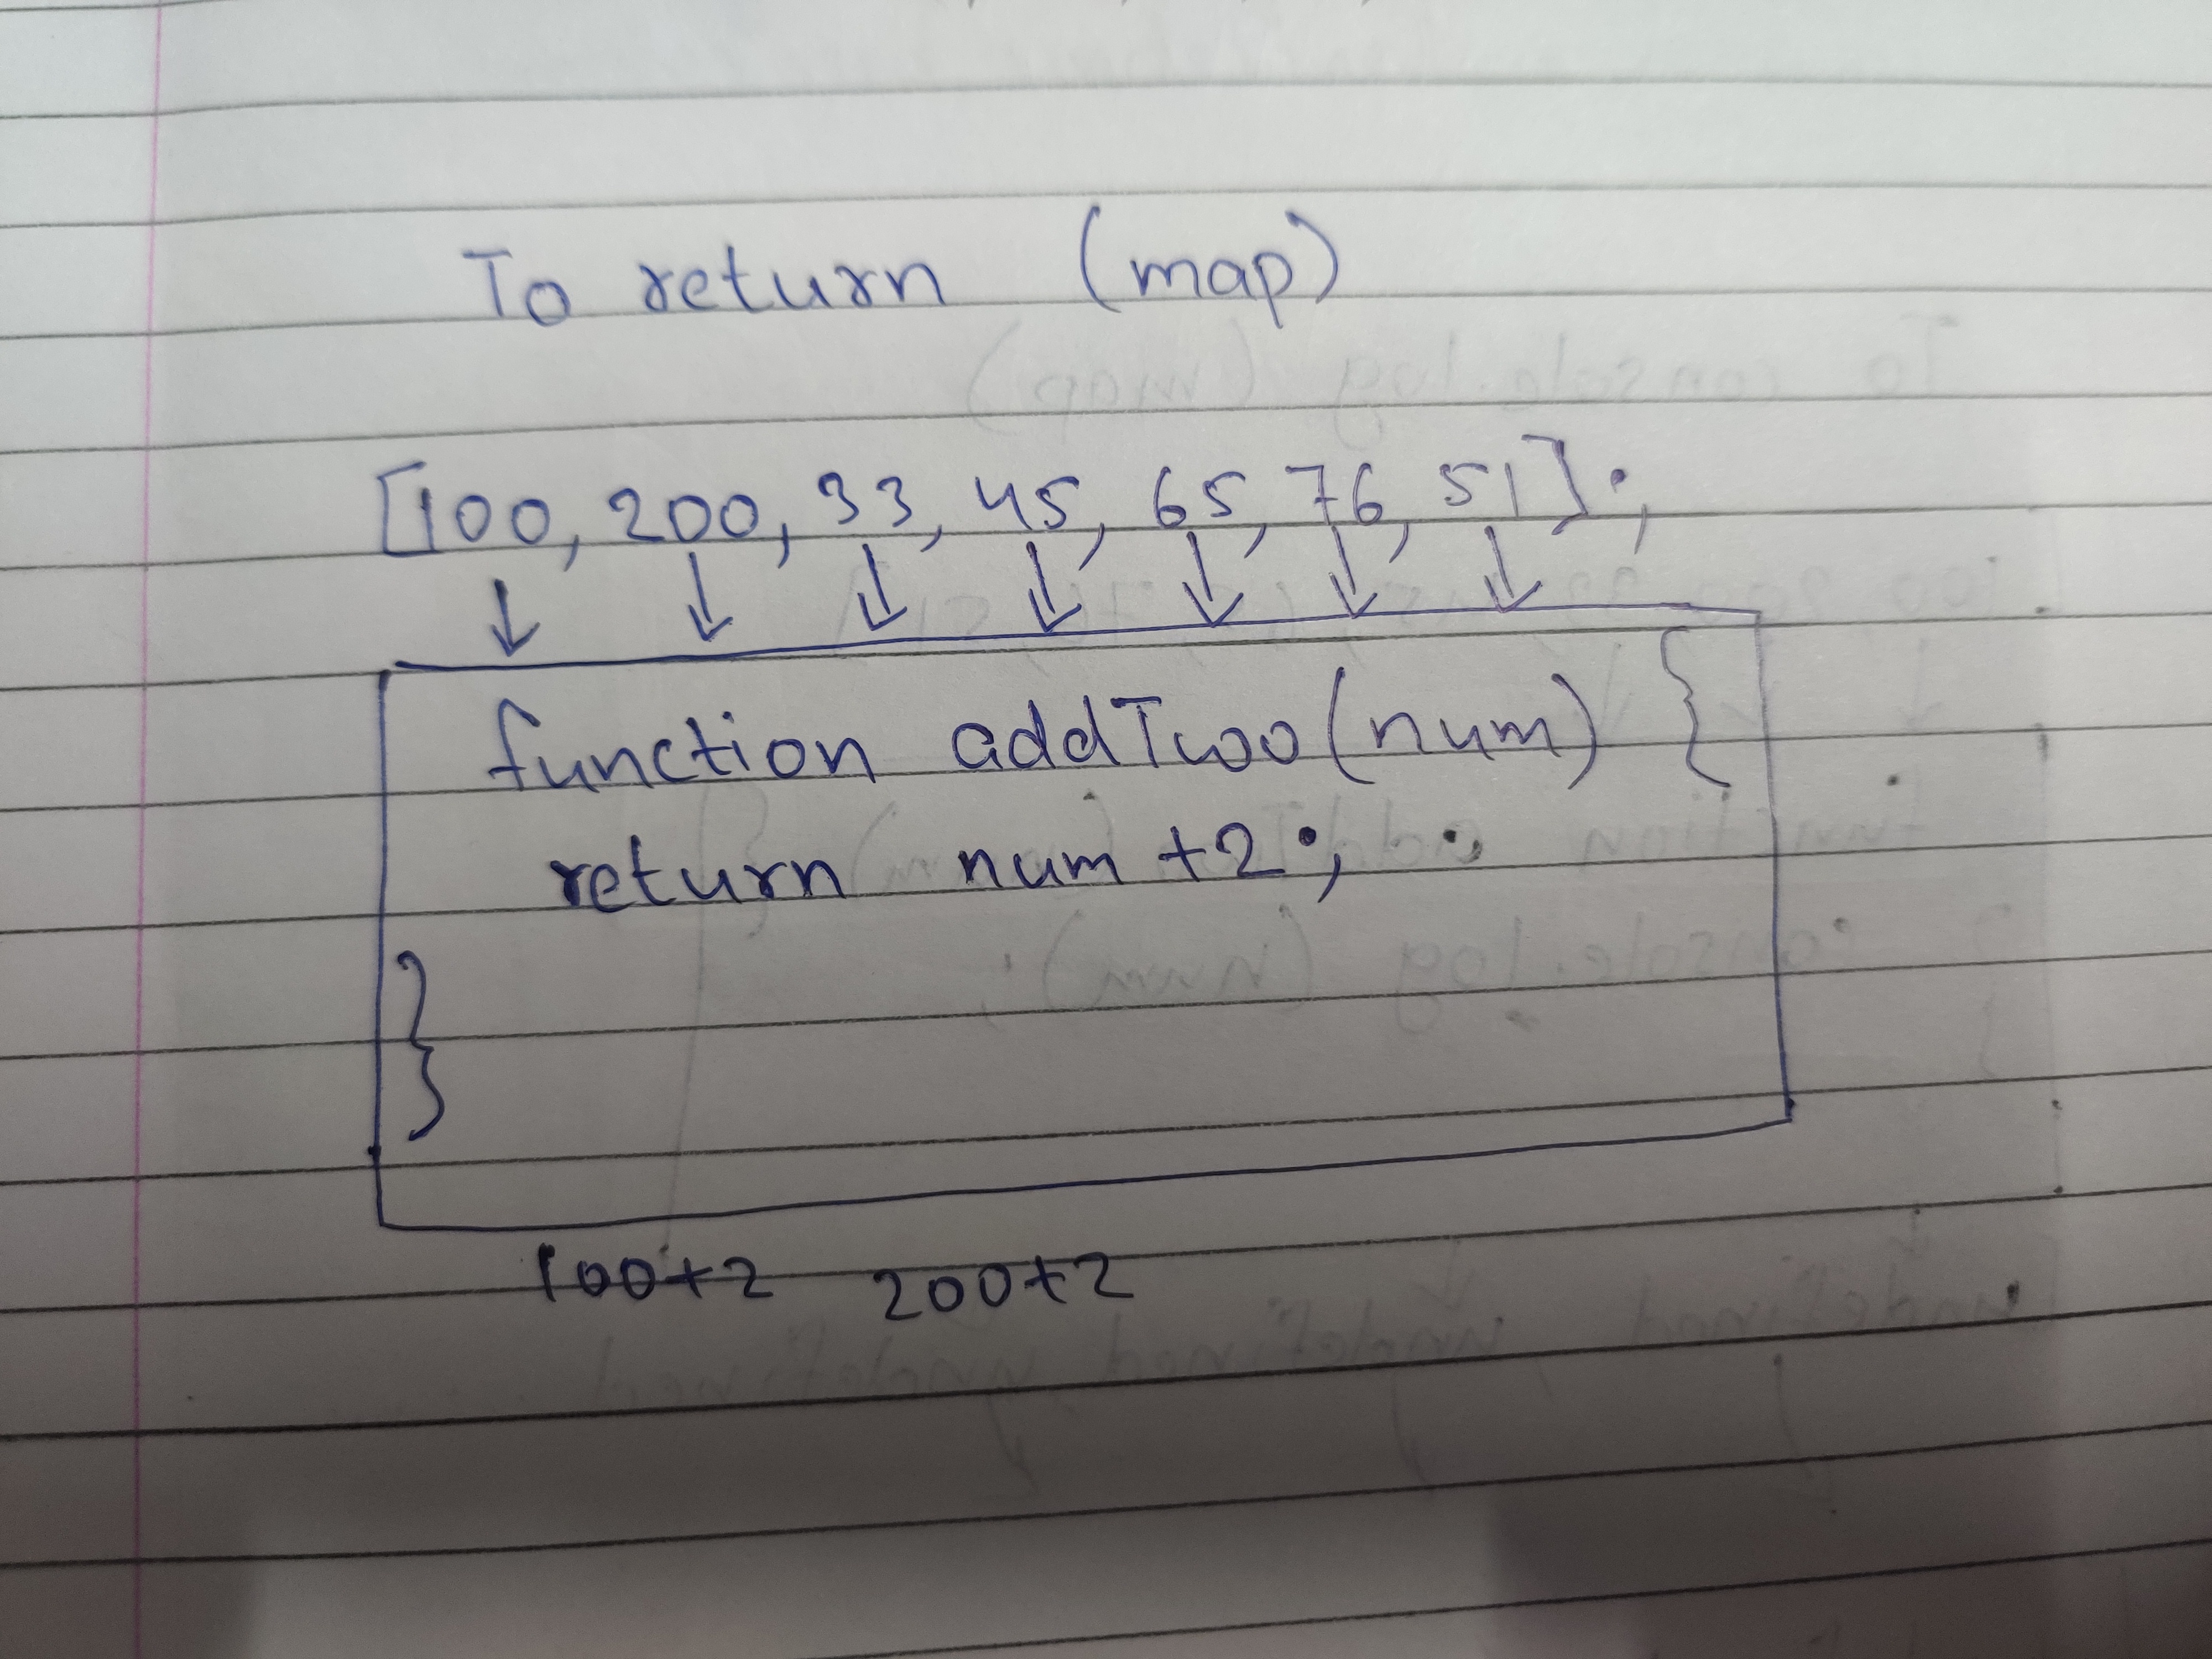 To return (map)
[100, 200, 33, 45, 65, 76, 51];
function addTwo(num) {
return num +2; ;
}
100+2 200+2